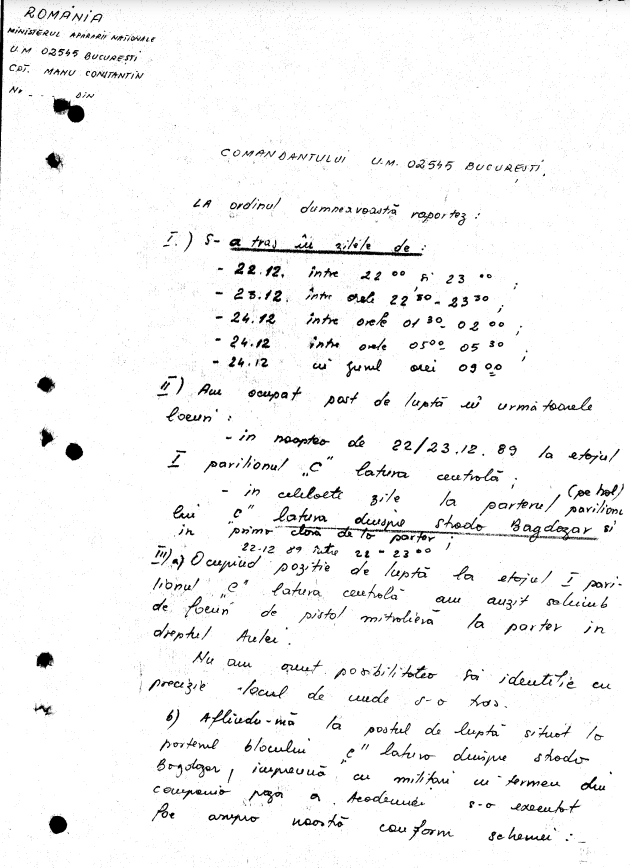 ROMÂNIA
MINISTERUL APĂRĂRII NAȚIONALE
U.M 02545 BUCUREȘTI
CPT. MANU CONSTANTIN
Nr _ _ _ _ DIN
COMANDANTULUI U.M. 02545 BUCUREȘTI.
LA ordinul dumneavoastră raportez :
I.) S- a tras în zilele de :
- 22.12. între 22 00 și 23 00 ;
- 23.12. între orele 22 30 - 23 30 ;
- 24.12 între orele 01 30 - 02 00 ;
- 24.12 între orele 05 00 - 05 30 ;
- 24.12 în jurul orei 09 00
II) Am ocupat post de luptă în următoarele
locuri :
- in noaptea de 22/23.12.89 la etajul
I pavilionul "C" latura centrală ;
- in celelalte zile la parterul (pe hol) pavilionu
lui "C" latura dinspre strada Bagdazar și
in prima clasă de la parter ;
22.12 89 între 22 - 23 00
III) a) Ocupînd poziție de luptă la etajul I pavi-
lionul "C" latura centrală am auzit schimb
de focuri de pistol mitralieră la parter in
dreptul Aulei.
Nu am avut posibilitatea să identific cu
precizie -locul de unde s-a tras.
b) Aflîndu-mă la postul de luptă situat la
parterul blocului "C" latura dinspre strada
Bagdazar, împreună cu militari in termen din
compania pază a Academiei s-a executat
foc asupra noastră conform schemei : -